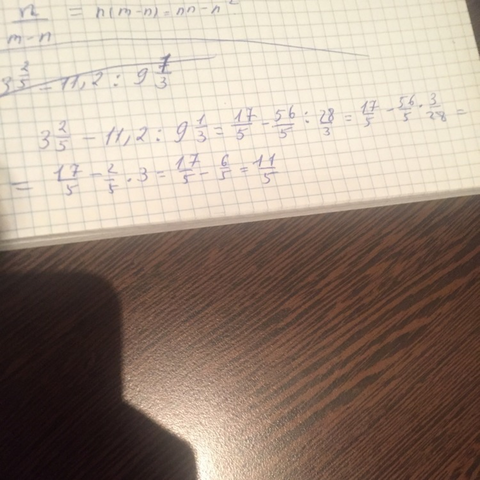 n/(m-n) = n(m-n) = nn-n²
3 2/5 - 11,2 : 9 1/3
3 2/5 - 11,2 : 9 1/3 = 17/5 - 56/5 : 28/3 = 17/5 - 56/5 · 3/28 =
= 17/5 - 2/5 · 3 = 17/5 - 6/5 = 11/5